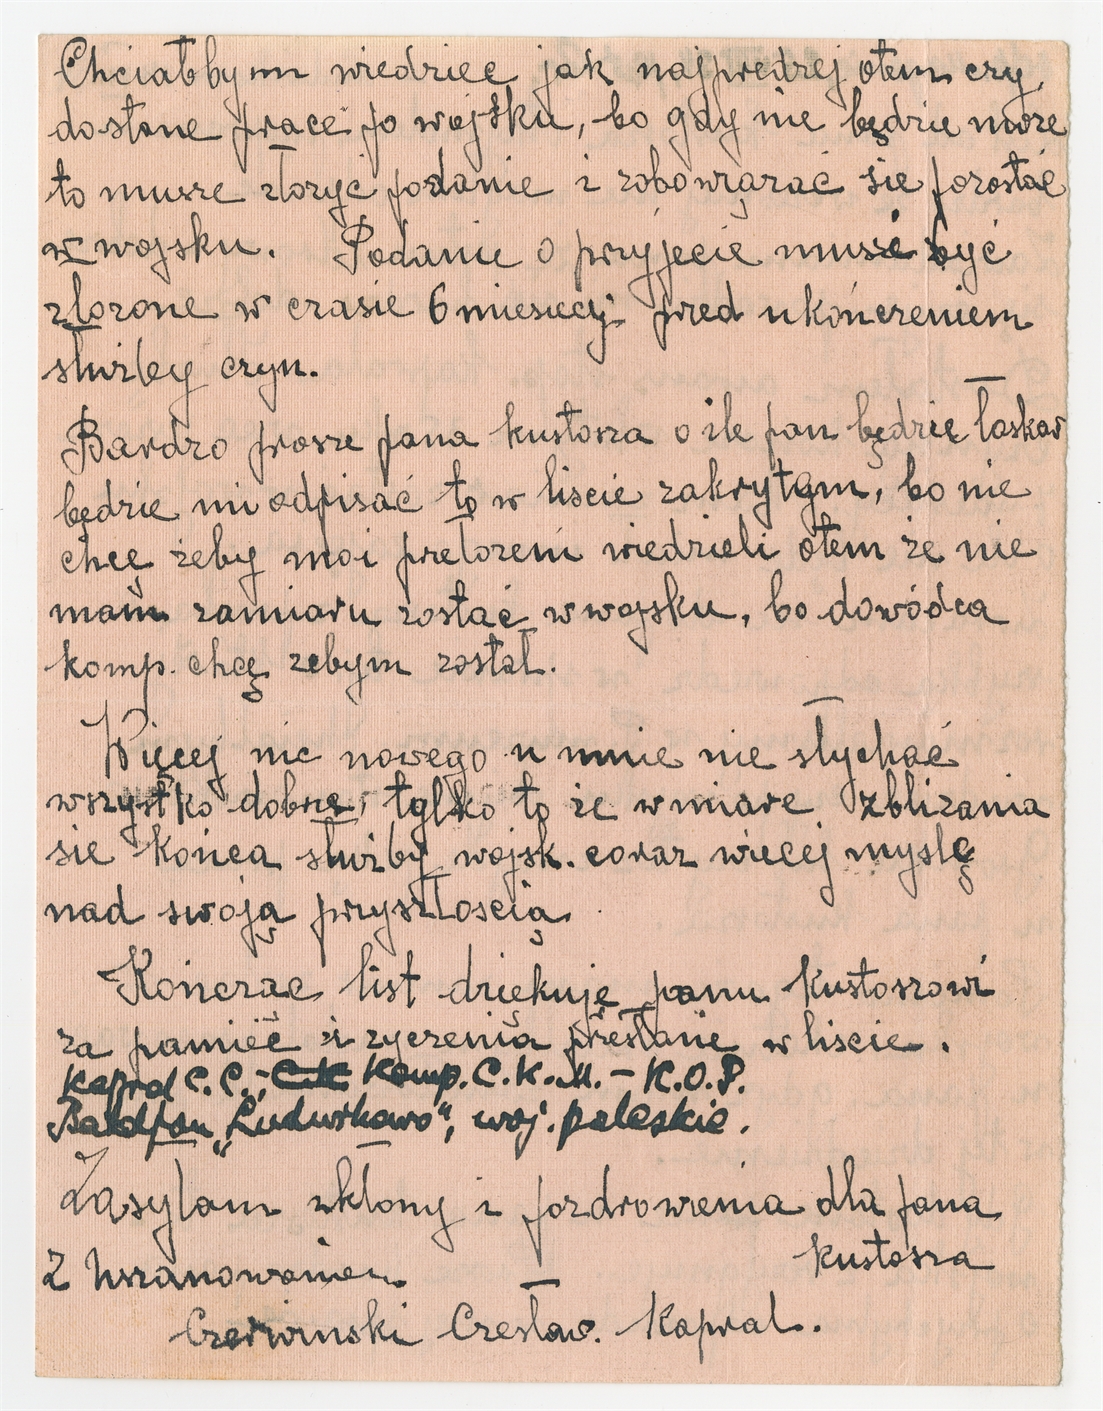 Chciałbym wiedzieć jak najpredzej otem czy
dostane prace po wojsku, bo gdy nie będzie może
to musze złożyć podanie i zobowiązać sie pozostać
w wojsku. Podanie o przyjecie musze być
złożone w czasie 6 miesiecy pred ukończeniem
służby czyn.
Bardzo prosze pana kustosza o ile pan będzie łaskaw
będzie mi odpisać to w liscie zakrytym, bo nie
chcę żeby moi prełozeni wiedzieli otem że nie
mam zamiaru zostać w wojsku, bo dowódca
komp. chcę zebym został.
Więcej nic nowego u mnie nie słychać
wszystko dobrze, tylko to że w miare zbliżania
sie końca służby wojsk. coraz wiecej myslę
nad swoją przyszłoscią.
Kończąc list dziękuję panu Kustoszowi
za pamięć i zyczenia presłane w liscie.
Kaprol C. C., Komp. C.K.M. – K.O.P.
"Ludwikowo", woj. poleskie.
Zasyłam ukłony i pozdrowienia dla pana
kustosza
Z Uszanowaniem
Czerwinski Czesław. Kapral.